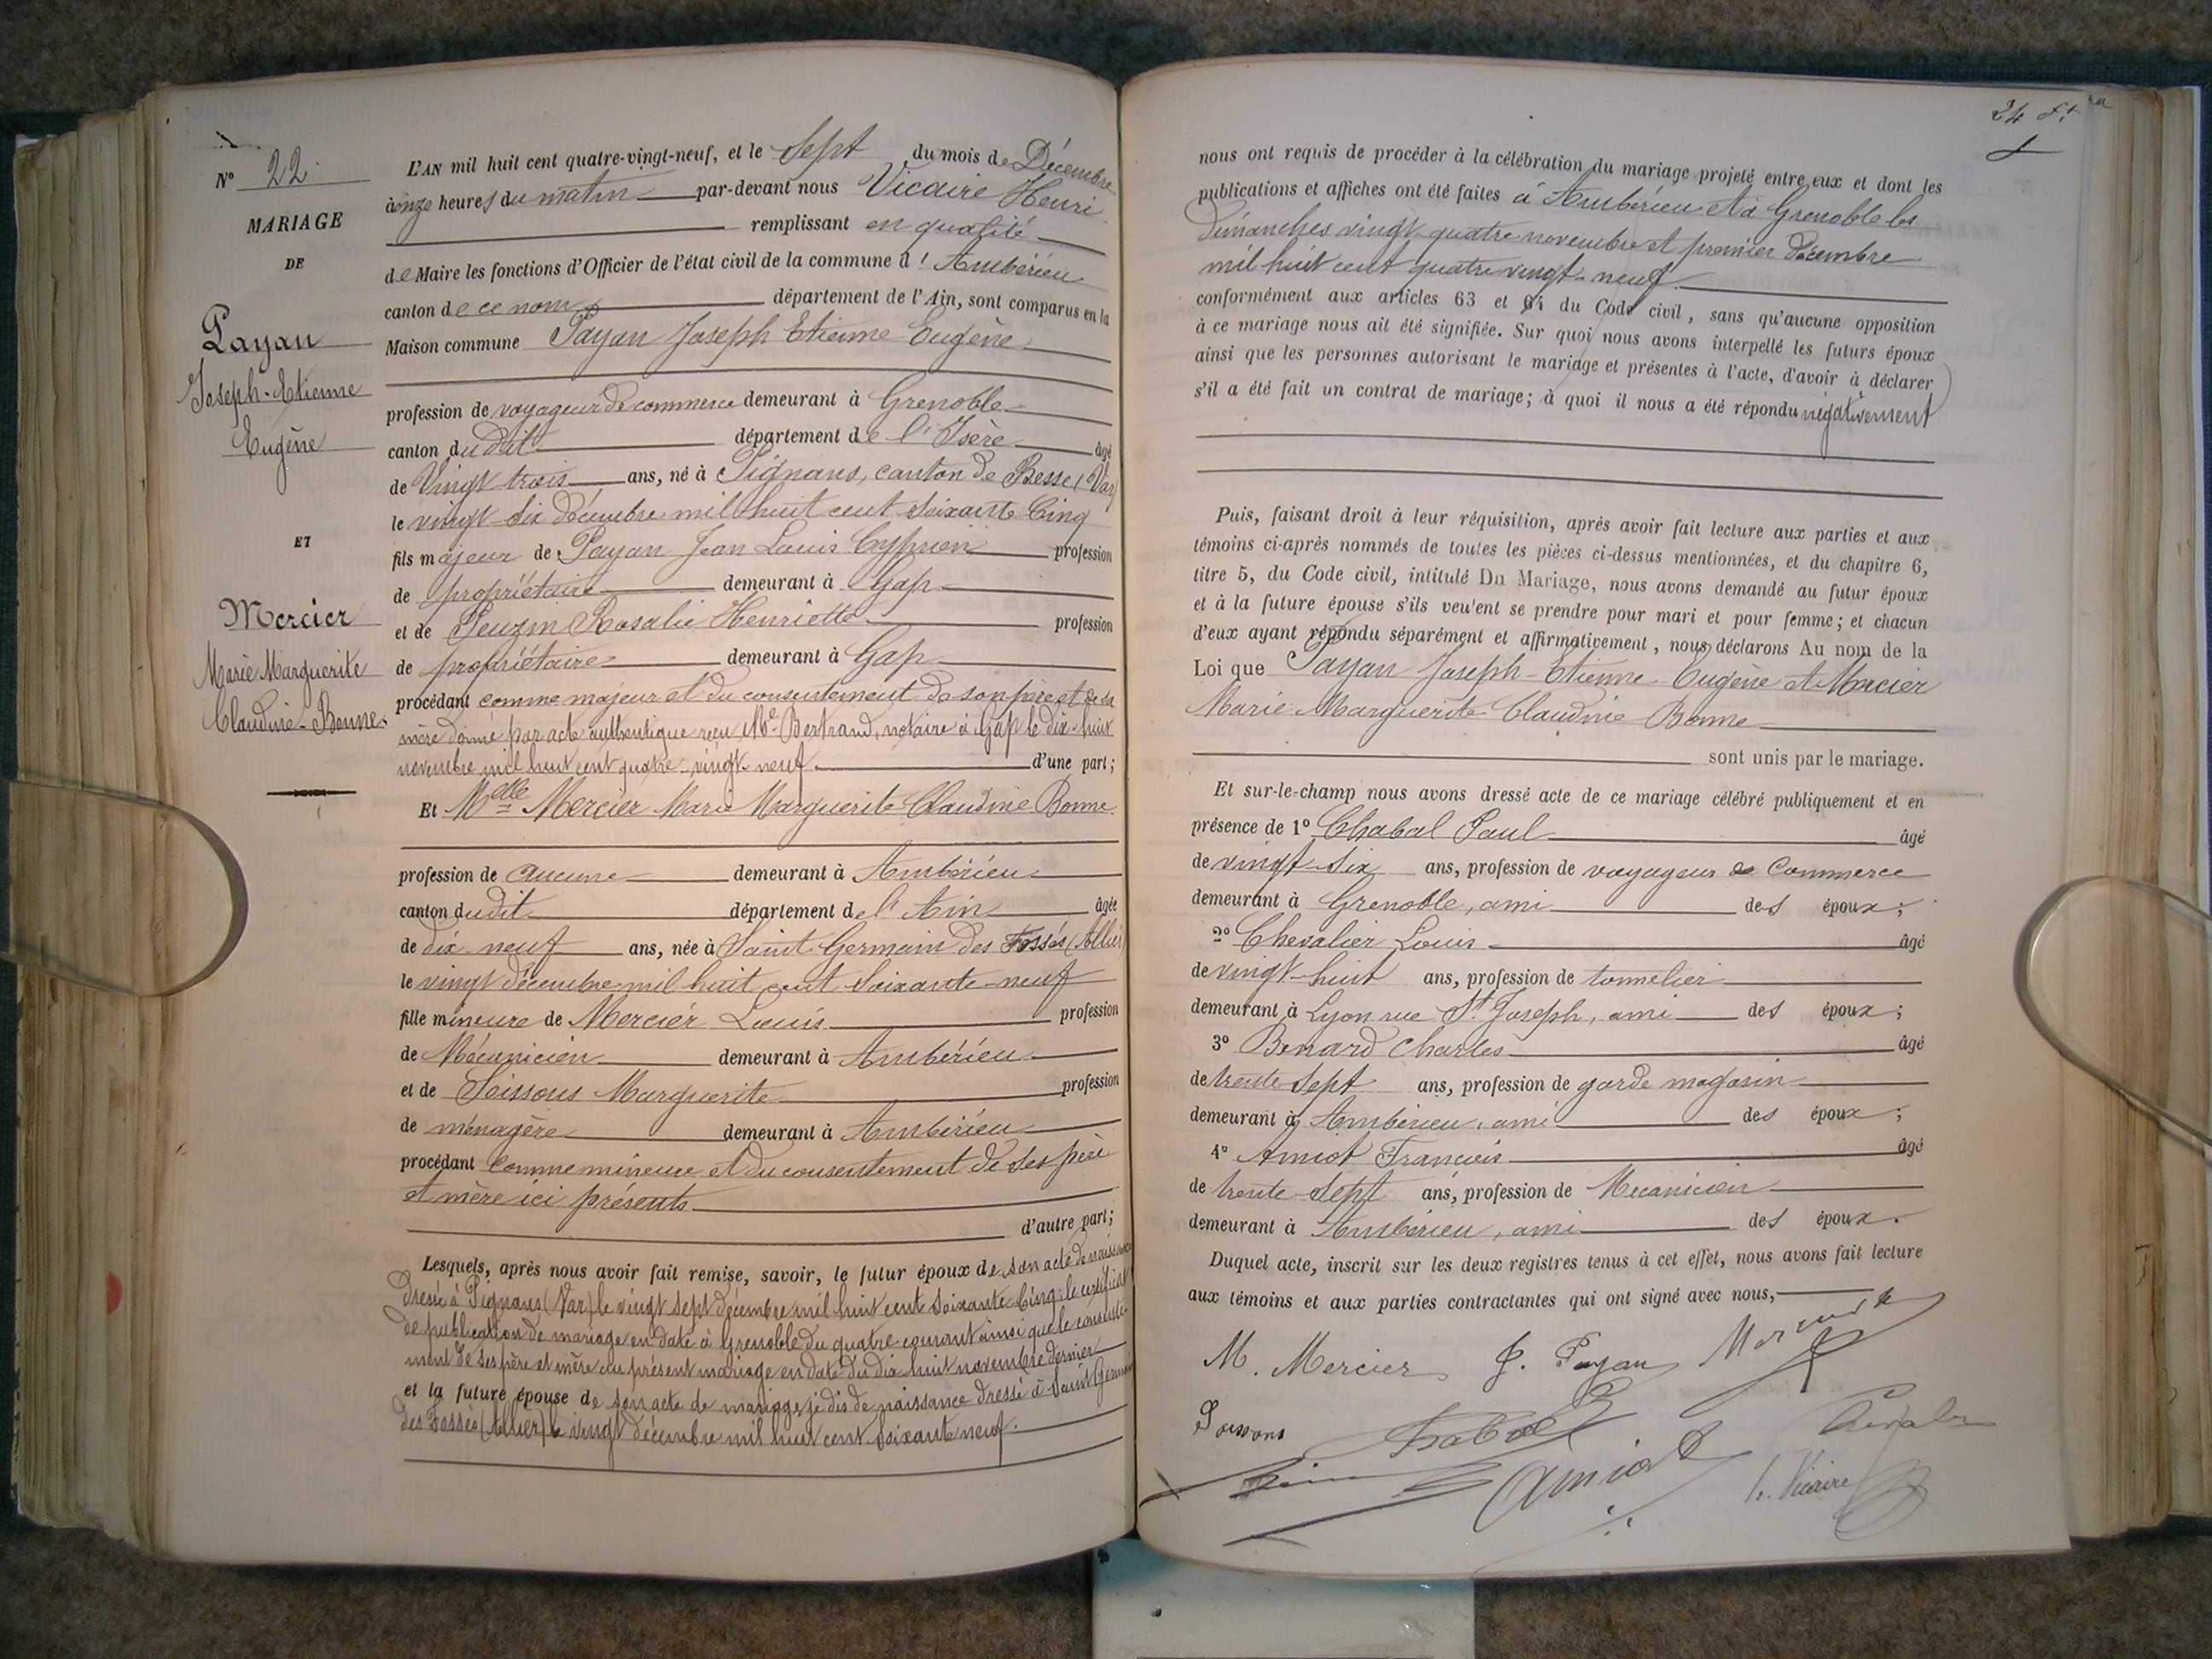 N° 22
MARIAGE
DE
Payan
Joseph-Etienne
Eugène
ET
Mercier
Marie Marguerite
Claudine-Bonne
L'AN mil huit cent quatre-vingt-neuf, et le Sept du mois de Décembre
à onze heures du matin par-devant nous Vicaire Henri
remplissant en qualité
de Maire les fonctions d'Officier de l'état civil de la commune d' Ambérieu
canton de ce nom département de l'Ain, sont comparus en la
Maison commune Payan Joseph Etienne Eugène
profession de voyageur de commerce demeurant à Grenoble
canton dudit département de l'Isère âgé
de Vingt trois ans, né à Pignans, canton de Besse (Var)
le vingt six décembre mil huit cent soixante Cinq
fils majeur de Payan Jean Louis Cyprien profession
de propriétaire demeurant à Gap
et de Peuzin Rosalie Henriette profession
de propriétaire demeurant à Gap
procédant comme majeur et du consentement de son père et de sa
mère donné par acte authentique reçu Me Bertrand, notaire à Gap le dix huit
novembre mil huit cent quatre-vingt-neuf d'une part;
Et Melle Mercier Marie Marguerite Claudine Bonne
profession de aucune demeurant à Ambérieu
canton dudit département de l'Ain âgée
de dix neuf ans, née à Saint Germain des Fossés (Allier)
le vingt décembre mil huit cent soixante-neuf
fille mineure de Mercier Louis profession
de Mécanicien demeurant à Ambérieu
et de Soissons Marguerite profession
de ménagère demeurant à Ambérieu
procédant comme mineure et du consentement de ses père
et mère ici présents
d'autre part;
Lesquels, après nous avoir fait remise, savoir, le futur époux de son acte de naissance
dressé à Pignans (Var) le vingt sept décembre mil huit cent soixante Cinq; le certificat
de publication de mariage en date à Grenoble du quatre courant ainsi que le consente-
ment de ses père et mère au présent mariage en date du dix huit novembre dernier
et la future épouse de son acte de mariage, je dis de naissance dressé à Saint Germain
des Fossés (Allier) le vingt décembre mil huit cent soixante neuf.
24 Ft
nous ont requis de procéder à la célébration du mariage projeté entre eux et dont les
publications et affiches ont été faites à Ambérieu et à Grenoble les
dimanches vingt quatre novembre et premier décembre
mil huit cent quatre vingt-neuf
conformément aux articles 63 et 64 du Code civil, sans qu'aucune opposition
à ce mariage nous ait été signifiée. Sur quoi nous avons interpellé les futurs époux
ainsi que les personnes autorisant le mariage et présentes à l'acte, d'avoir à déclarer
s'il a été fait un contrat de mariage; à quoi il nous a été répondu négativement
Puis, faisant droit à leur réquisition, après avoir fait lecture aux parties et aux
témoins ci-après nommés de toutes les pièces ci-dessus mentionnées, et du chapitre 6,
titre 5, du Code civil, intitulé Du Mariage, nous avons demandé au futur époux
et à la future épouse s'ils veulent se prendre pour mari et pour femme; et chacun
d'eux ayant répondu séparément et affirmativement, nous déclarons Au nom de la
Loi que Payan Joseph-Etienne-Eugène et Mercier
Marie-Marguerite Claudine Bonne
sont unis par le mariage.
Et sur-le-champ nous avons dressé acte de ce mariage célébré publiquement et en
présence de 1° Chabal Paul âgé
de vingt-six ans, profession de voyageur de Commerce
demeurant à Grenoble, ami des époux;
2° Chevalier Louis âgé
de vingt-huit ans, profession de tonnelier
demeurant à Lyon rue St Joseph, ami des époux;
3° Benard Charles âgé
de trente Sept ans, profession de garde magasin
demeurant à Ambérieu, ami des époux;
4° Amiot François âgé
de trente-Sept ans, profession de Mécanicien
demeurant à Ambérieu, ami des époux.
Duquel acte, inscrit sur les deux registres tenus à cet effet, nous avons fait lecture
aux témoins et aux parties contractantes qui ont signé avec nous,
M. Mercier J. Payan Mercier
Soissons Chabal
Amiot H. Vicaire